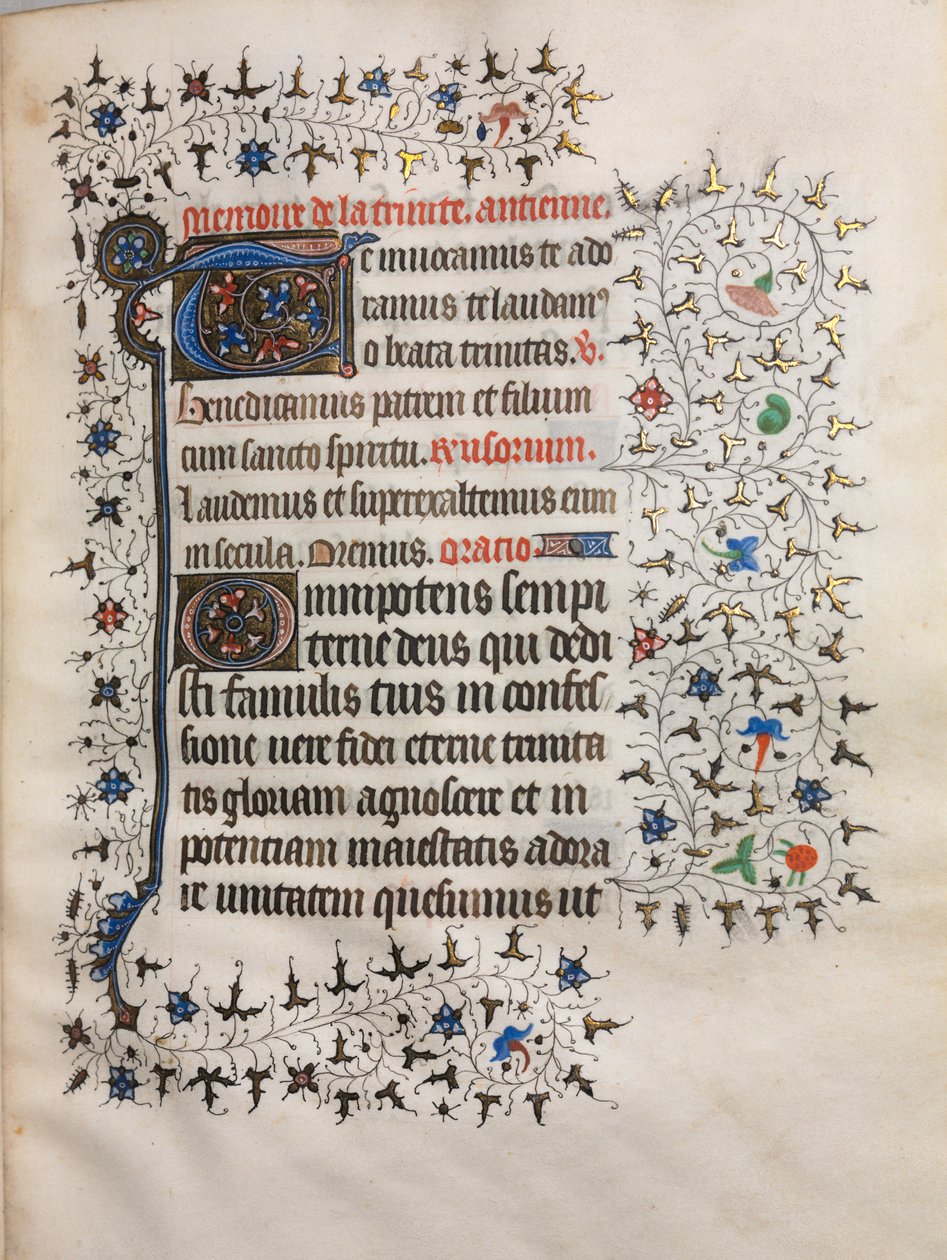 Memoire de la trinite. antienne.
Te inuocamus te ado
ramus te laudamꝰ
o beata trinitas. ℣.
Benedicamus patrem et filium
cum sancto spiritu. Rusorium.
Laudemus et superexaltemus eum
in secula. Oremus. Oratio.
Omnipotens sempi
terne deus qui dedi
sti famulis tuis in confes
sione uere fidei eterne trinita
tis gloriam agnoscere et in
potentiam maiestatis adora
re unitatem quesumus ut